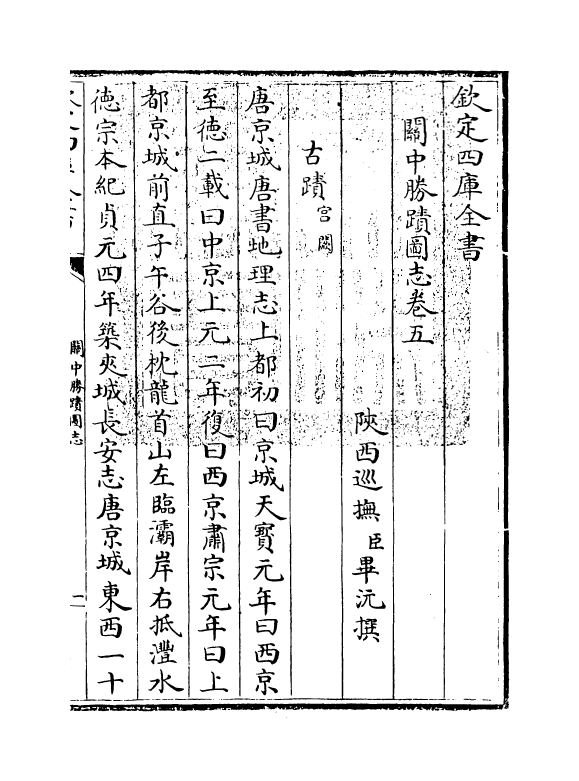 欽定四庫全書
關中勝蹟圖志卷五
陜西巡撫臣畢沅撰
古蹟宮闕
唐京城唐書地理志上都初曰京城天寳元年曰西京
至徳二載曰中京上元二年復曰西京肅宗元年曰上
都京城前直子午谷後枕龍首山左臨灞岸右抵灃水
徳宗本紀貞元四年築夾城長安志唐京城東西一十
關中勝蹟圖志